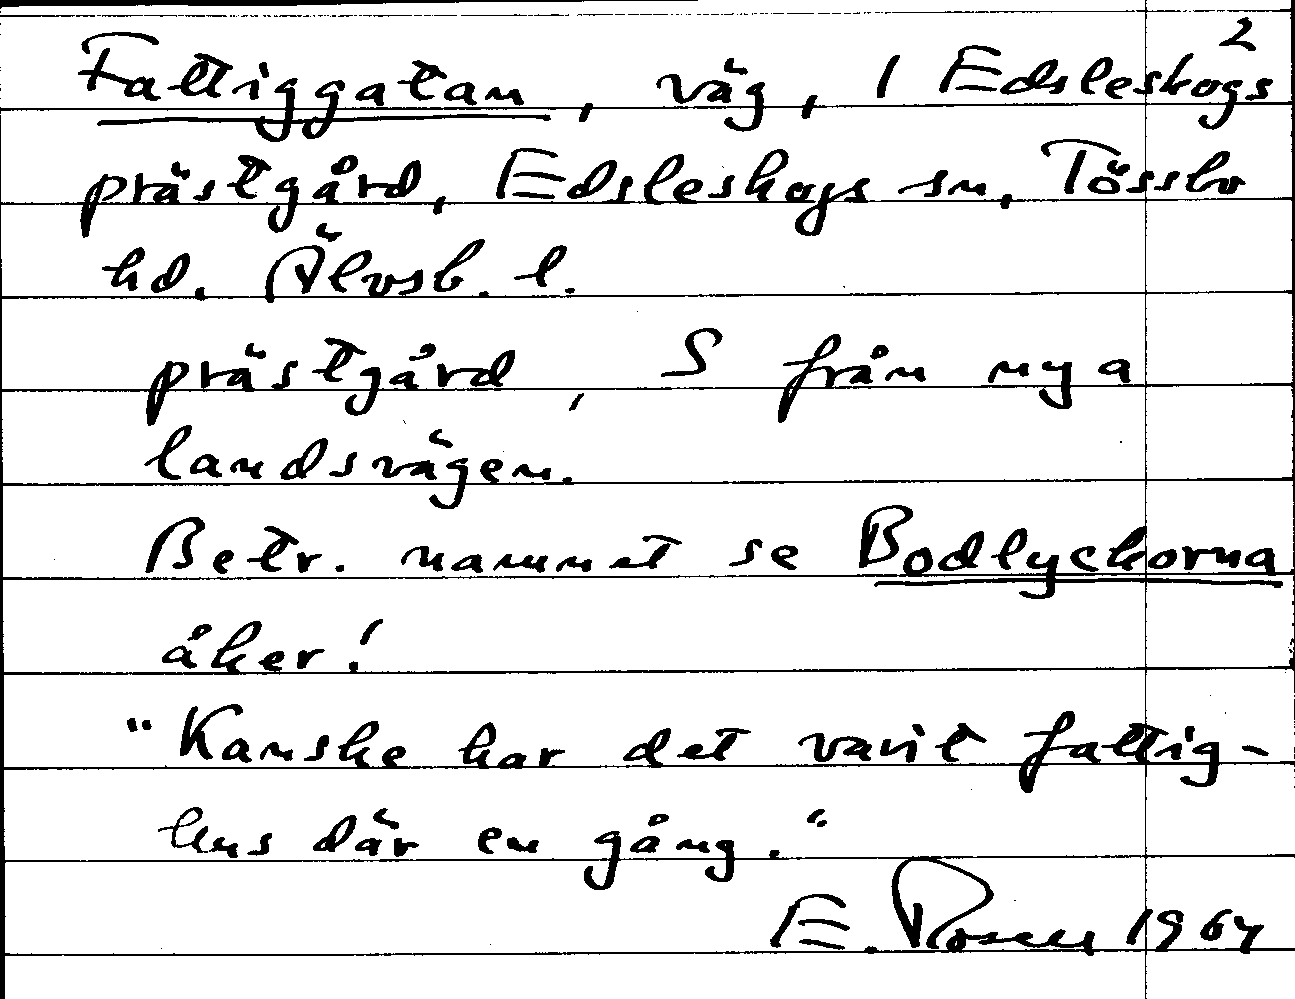 2
Fattiggatan, väg, / Edsleskogs
prästgård, Edsleskogs sn, Tössbo
hd. Älvsb. l.
prästgård, S från nya
landsvägen.
Betr. namnet se Bodlyckorna
åker!
"Kanske har det varit fattig-
hus där en gång."
E. Rosen 1964